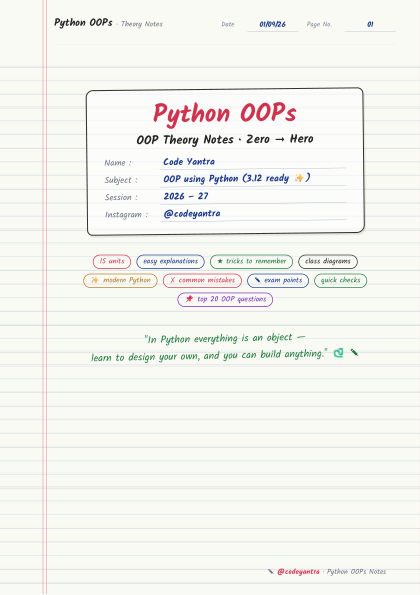 Python OOPs · Theory Notes Date 01/09/26 Page No. 01
Python OOPs
OOP Theory Notes · Zero → Hero
Name : Code Yantra
Subject : OOP using Python (3.12 ready ✨)
Session : 2026 – 27
Instagram : @codeyantra
15 units easy explanations ★ tricks to remember class diagrams
✨ modern Python ✗ common mistakes ✎ exam points quick checks
📌 top 20 OOP questions
"In Python everything is an object —
learn to design your own, and you can build anything." 🐍 ✎
✎ @codeyantra · Python OOPs Notes